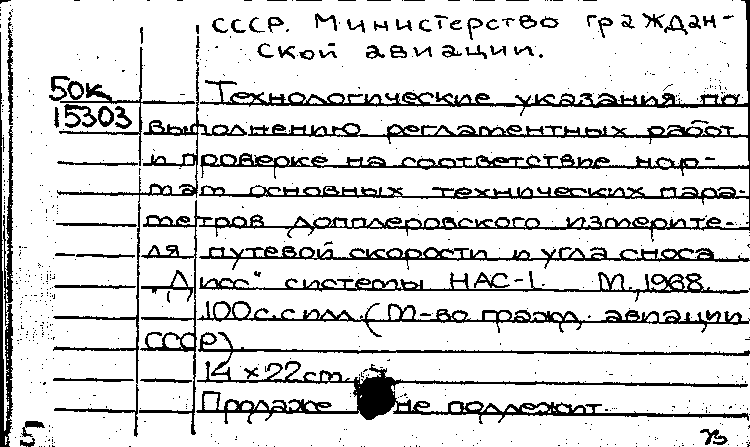 СССР. Министерство граждан-
ской авиации.
50к
15303
Технологические указания по
выполнению регламентных работ
и проверке на соответствие нор-
мам основных технических пара-
метров допплеровского измерите-
ля путевой скорости и угла сноса
"Дисс" системы НАС-1. М., 1968.
100с. с илл. (М-во гражд. авиации
СССР).
14 × 22 см.
Продаже не подлежит
5